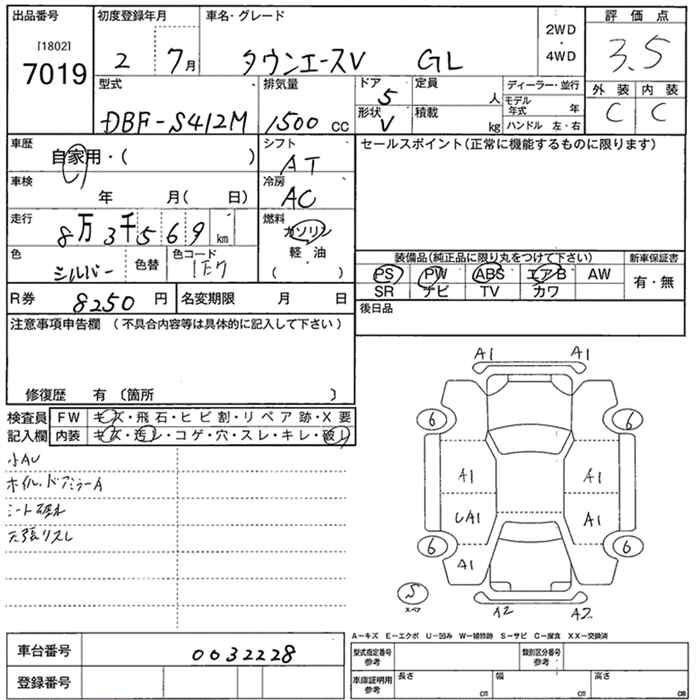 出品番号
[1802]
7019
初度登録年月
2 7月
車名・グレード
タウンエースV GL
2WD
・
4WD
評価点
3.5
外装 内装
C C
型式
DBF-S412M
排気量
1500 cc
ドア
5
形状
V
定員
人
積載
kg
ディーラー・並行
モデル年式 年
ハンドル 左・右
車歴
自家用・( )
車検
年 月( 日)
走行
8万3千569 km
色
シルバー
色替
色コード
1E7
シフト
AT
冷房
AC
燃料
ガソリン
軽油
( )
セールスポイント(正常に機能するものに限ります)
装備品(純正品に限り丸をつけて下さい)
PS PW ABS エアB AW
SR ナビ TV カワ
新車保証書
有・無
後日品
R券 8250 円
名変期限 月 日
注意事項申告欄 (不具合内容等は具体的に記入して下さい)
修復歴 有 〔箇所 〕
検査員
記入欄
FW キズ・飛石・ヒビ割・リペア跡・X要
内装 キズ・汚レ・コゲ・穴・スレ・キレ・破レ
小AU
ホイル、ドアミラーA
シート破れ
天張りスレ
A1 A1
6 6
A1 A1
UA1 A1
6 6
A1
S
スペア
A2 A2
A-キズ E-エクボ U-凹み W-補修跡 S-サビ C-腐食 XX-交換済
車台番号
0032228
登録番号
型式指定番号
参考
類別区分番号
参考
車庫証明用
参考
長さ cm
幅 cm
高さ cm